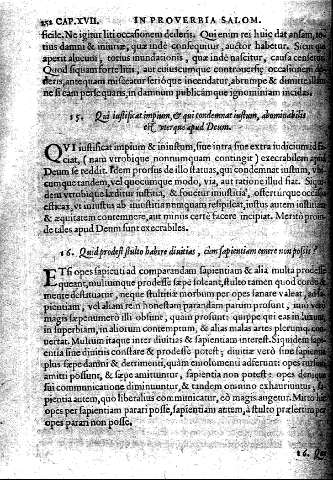 252 CAP. XVII. IN PROVERBIA SALOM.
ficile. Ne igitur liti occasionem dederis. Qui enim rei huic dat ansam,
tius damni & iniuriæ, quæ inde consequitur, auctor habetur. Sicut
aperit alueum, totius inundationis, quæ inde nascitur, causa censetur
Quod si quam forte litis, aut cuiuscumque controuersiæ occasionem
deris, antequam misceatur serióque incendatur, abrumpe & demitte,
ne si eam persequaris, in damnum publicámque ignominiam incidas.
15. Qui iustificat impium, & qui condemnat iustum, abominabilis
est vterque apud Deum.
QVI iustificat impium & iniustum, siue intra siue extra iudicium id
ciat, (nam vtrobique nonnumquam contingit) execrabilem apud
Deum se reddit. Idem prorsus de illo status, qui condemnat iustum,
cumque tandem, vel quocumque modo, via, aut ratione illud fiat.
dem vtrobique læditur iustitia, & fouetur iniustitia, offertúrque
vt iniustus ab iniustitia nequaquam resipiscat, iustus autem iustitiam
& æquitatem contemnere, aut minùs certè facere incipiat. Meritò
de tales apud Deum sunt execrabiles.
16. Quid prodest stulto habere diuitias, cùm sapientiam emere non possit?
ETsi opes sapientiæ ad comparandam sapientiam & alia multa prodesse
queant, multùmque prodesse sæpe soleant, stulto tamen quod corde &
mente destituatur, neque stultitiæ morbum per opes sanare valeat,
pientiam, vel aliam rem honestam parandam parum prosunt,
magis sæpenumerò illi obsunt, quàm prosunt: quippe qui eas in luxum,
in superbiam, in aliorum contemptum, & alias malas artes plerumque
uertat. Multùm itaque inter diuitias & sapientiam interest. Siquidem
entia sine diuitiis constare & prodesse potest; diuitiæ verò sine sapientia
plus sæpe damni & detrimenti, quàm emolumenti adferunt: opes
amitti possunt, & sæpe amittuntur, sapientia non potest: opes denique
sui communicatione diminuuntur, & tandem omnino exhauriuntur,
pientia autem, quo liberaliùs communicatur, eò magis augetur. Mitto
opes per sapientiam parari posse, sapientiam autem, à stulto præsertim per
opes parari non posse.
16.